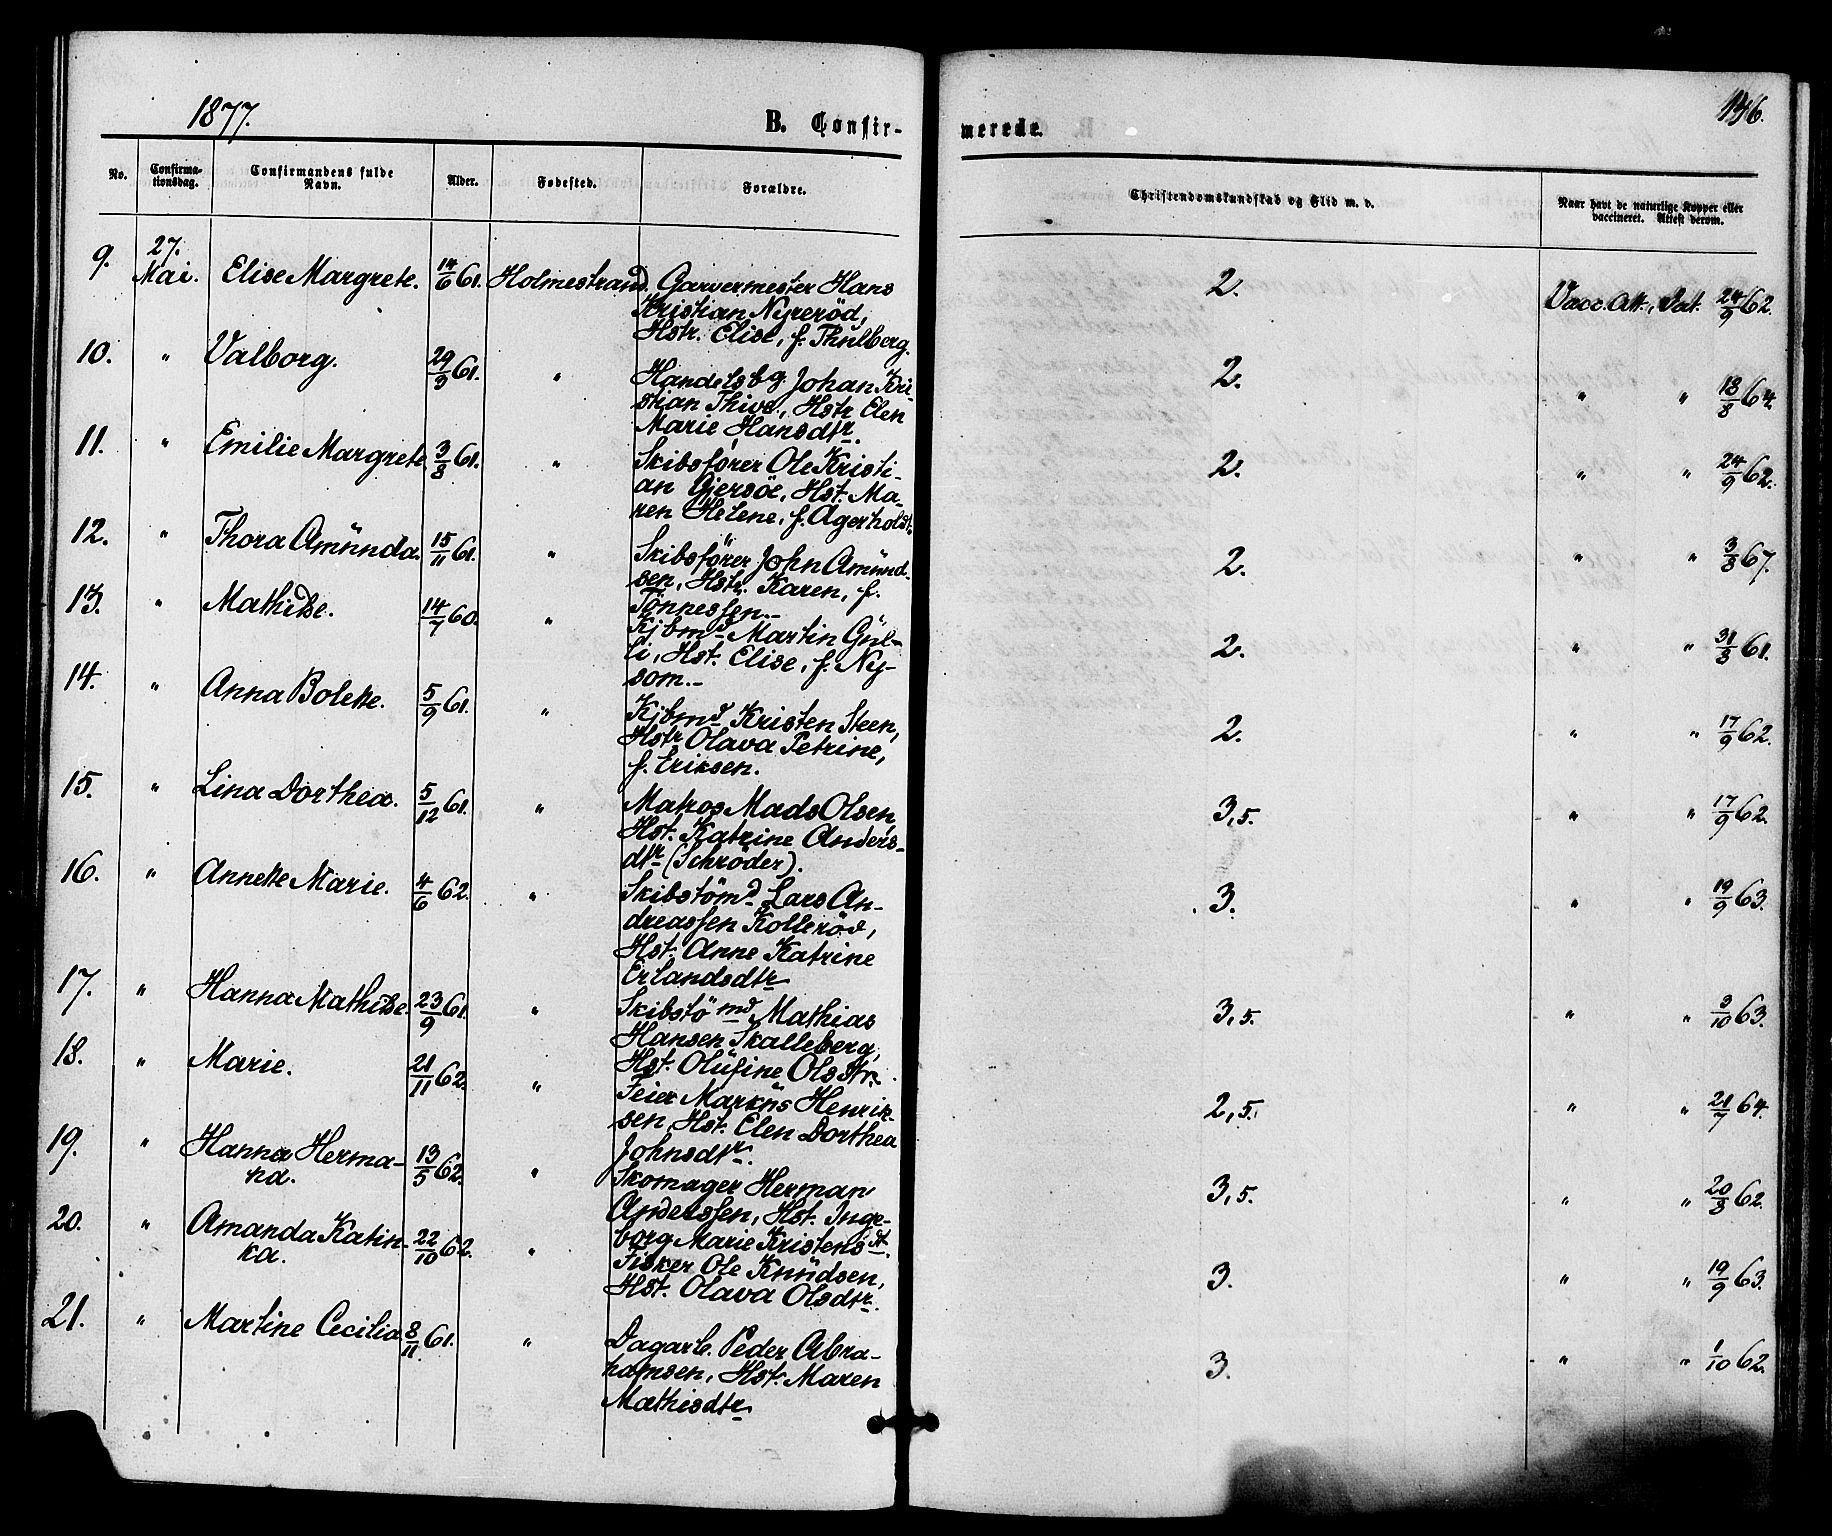 1877.
B. Confir-
merede.
146.
No.
Confirma-
tionsdag.
Confirmandens fulde
Navn.
Alder.
Fødested.
Forældre.
Christendomskundskab og Flid m. v.
Naar havt de naturlige Kopper eller
vaccineret. Attest derom.
9. 27. Mai. Elise Margrete. 14/6 61. Holmestrand. Garvermester Hans
Kristian Nyreröd,
Hstr. Elise, f. Thulberg.
2. Vacc. Att., Dat. 24/9 62.
10. " Valborg. 29/3 61. " Handelsbg. Johan Kri-
stian Thive, Hstr Elen
Marie Hansdtr.
2. " " 18/8 64.
11. " Emilie Margrete. 3/8 61. " Skibsfører Ole Kristi-
an Gjersöe, Hst. Ma-
ren Helene, f. Agerholdt.
2. " " 24/9 62.
12. " Thora Amunda. 15/11 61. " Skibsfører John Amund-
sen, Hstr. Karen, f.
Tönnessen.-
2. " " 3/8 67.
13. " Mathilde. 14/7 60. " Kjbmd Martin Gul-
li, Hst. Elise, f. Ny-
som.-
2. " " 31/8 61.
14. " Anna Bolette. 5/9 61. " Kjbmd Kristen Steen,
Hstr Olava Petrine,
f. Eriksen.
2. " " 17/9 62.
15. " Lina Dorthea. 5/12 61. " Matros Mads Olsen,
Hst. Katrine Anders-
dtr (Schröder).
3,5. " " 17/9 62.
16. " Annette Marie. 4/6 62. " Skibstömd Lars An-
dreassen Kolleröd,
Hst. Anne Katrine
Erlandsdtr
3. " " 19/9 63.
17. " Hanna Mathilde. 23/9 61. " Skibstömd Mathias
Hansen Skalleberg,
Hst. Olufine Olsdtr.
3,5. " " 3/10 63.
18. " Marie. 21/11 62. " Feier Markus Henrik-
sen, Hst. Elen Dorthea
Johnsdtr.
2,5. " " 21/7 64.
19. " Hanna Herma-
na. 13/5 62. " Skomager Herman
Anderssen, Hst. Inge-
borg Marie Kristensdt.
3,5. " " 20/8 62.
20. " Amanda Katin-
ka. 22/10 62. " Fisker Ole Knudsen,
Hst. Olava Olsdtr.
3. " " 19/9 63.
21. " Martine Cecilia. 8/11 61. " Dagarb. Peder Abra-
hamsen, Hst. Maren
Mathisdtr
3. " " 1/10 62.